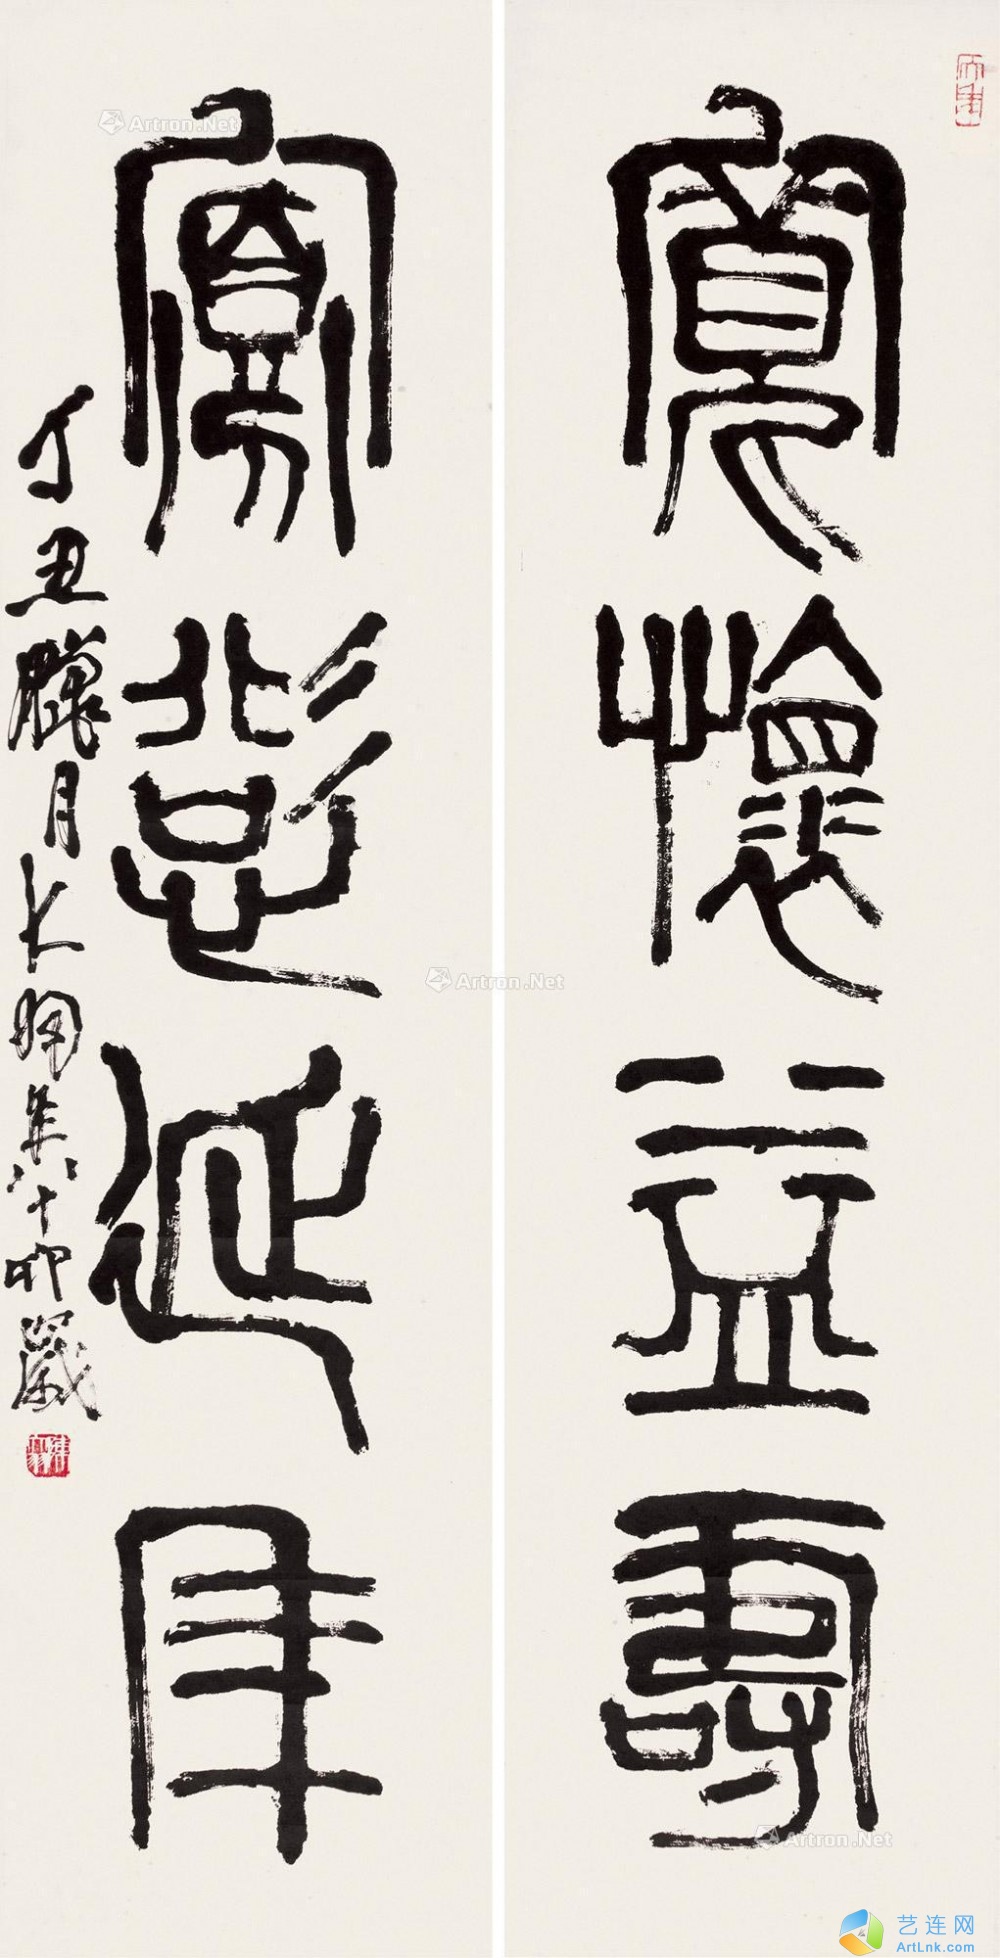 寬懷益壽
寫延年
丁丑臘月大羽年八十歲
Artron.Net
Artron.Net
Artron.Net
艺连网
ArtLnk.com